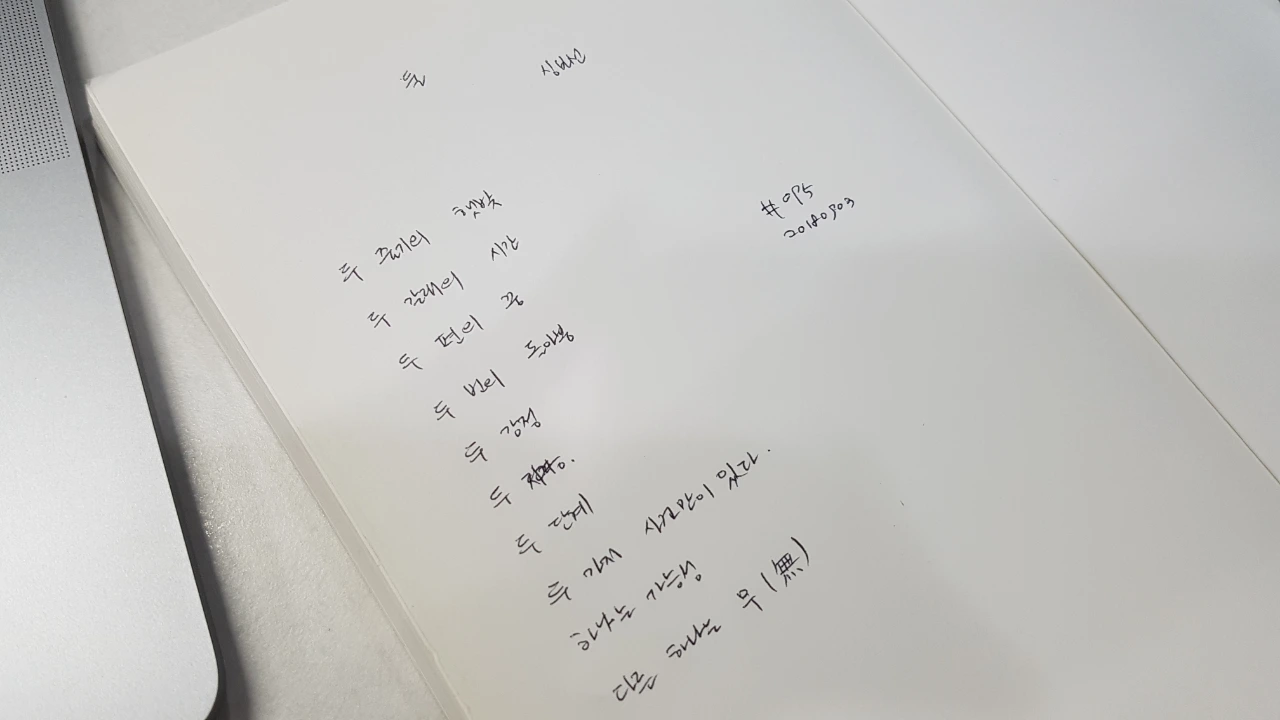 둘 심보선
#095
20180903
두 줄기의 햇빛
두 갈래의 시간
두 편의 꿈
두 번의 돌아봄
두 감정
두
두 단계
두 가지 사건만이 있다.
하나는 가능성
다른 하나는 무(無)